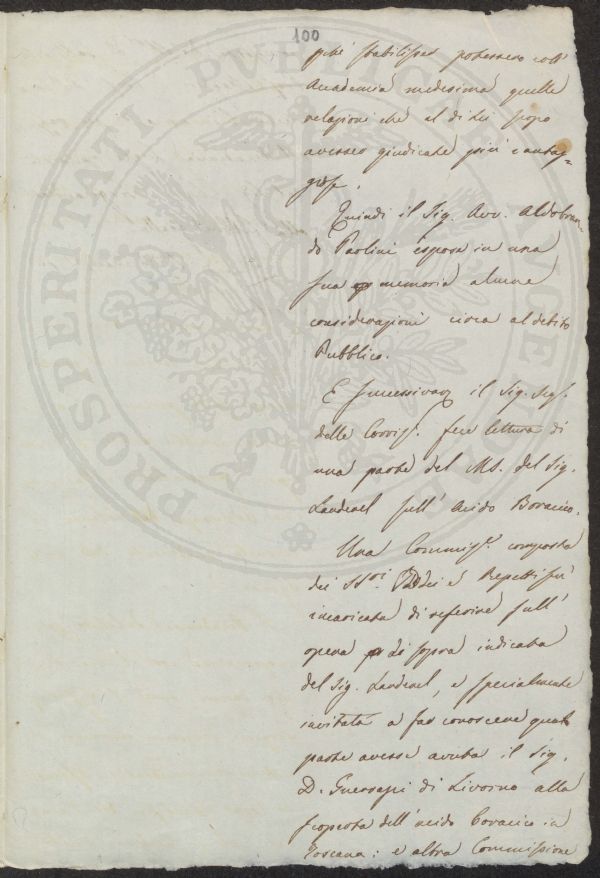 100
pchè stabilisse potessero coll'
Accademia medesima quelle
relazioni che al di lei scopo
avesse giudicate più vantag=
giose.
Quindi il Sig. Avv. Aldobran-
do Paolini espose in una
sua memoria alcune
considerazioni circa al debito
Pubblico.
E successivam il Sig. Seg.
delle Corrisp. fece lettura di
una parte del MS. del Sig.
Larderel sull' Acido Boracico.
Una Commiss. composta
dei SSri e Repetti fu
incaricata di referire sull'
opera di sopra indicata
del Sig. Larderel, e specialmente
invitata a far conoscere qual
parte avesse avuta il Sig.
D. Guerrazzi di Livorno alla
scoperta dell' acido boracico in
Toscana: e altra Commissione
PROSPERITATI PVBLICAE AVGENDAE